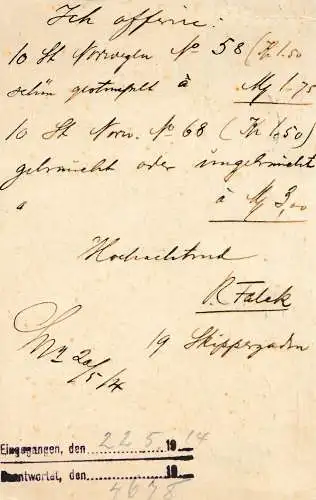 Ich offerire:
10 St Norwegen No 58 (Kr 1.50
schön gestempelt à Mk 1.75
10 St Norw. No 68 (Kr 1.50)
gebraucht oder ungebraucht
" à Mk 3,00
Hochachtend
R. Falck
19 Skippergaden
20/5/14
Eingegangen, den 22 5 1914
Beantwortet, den 19
4678